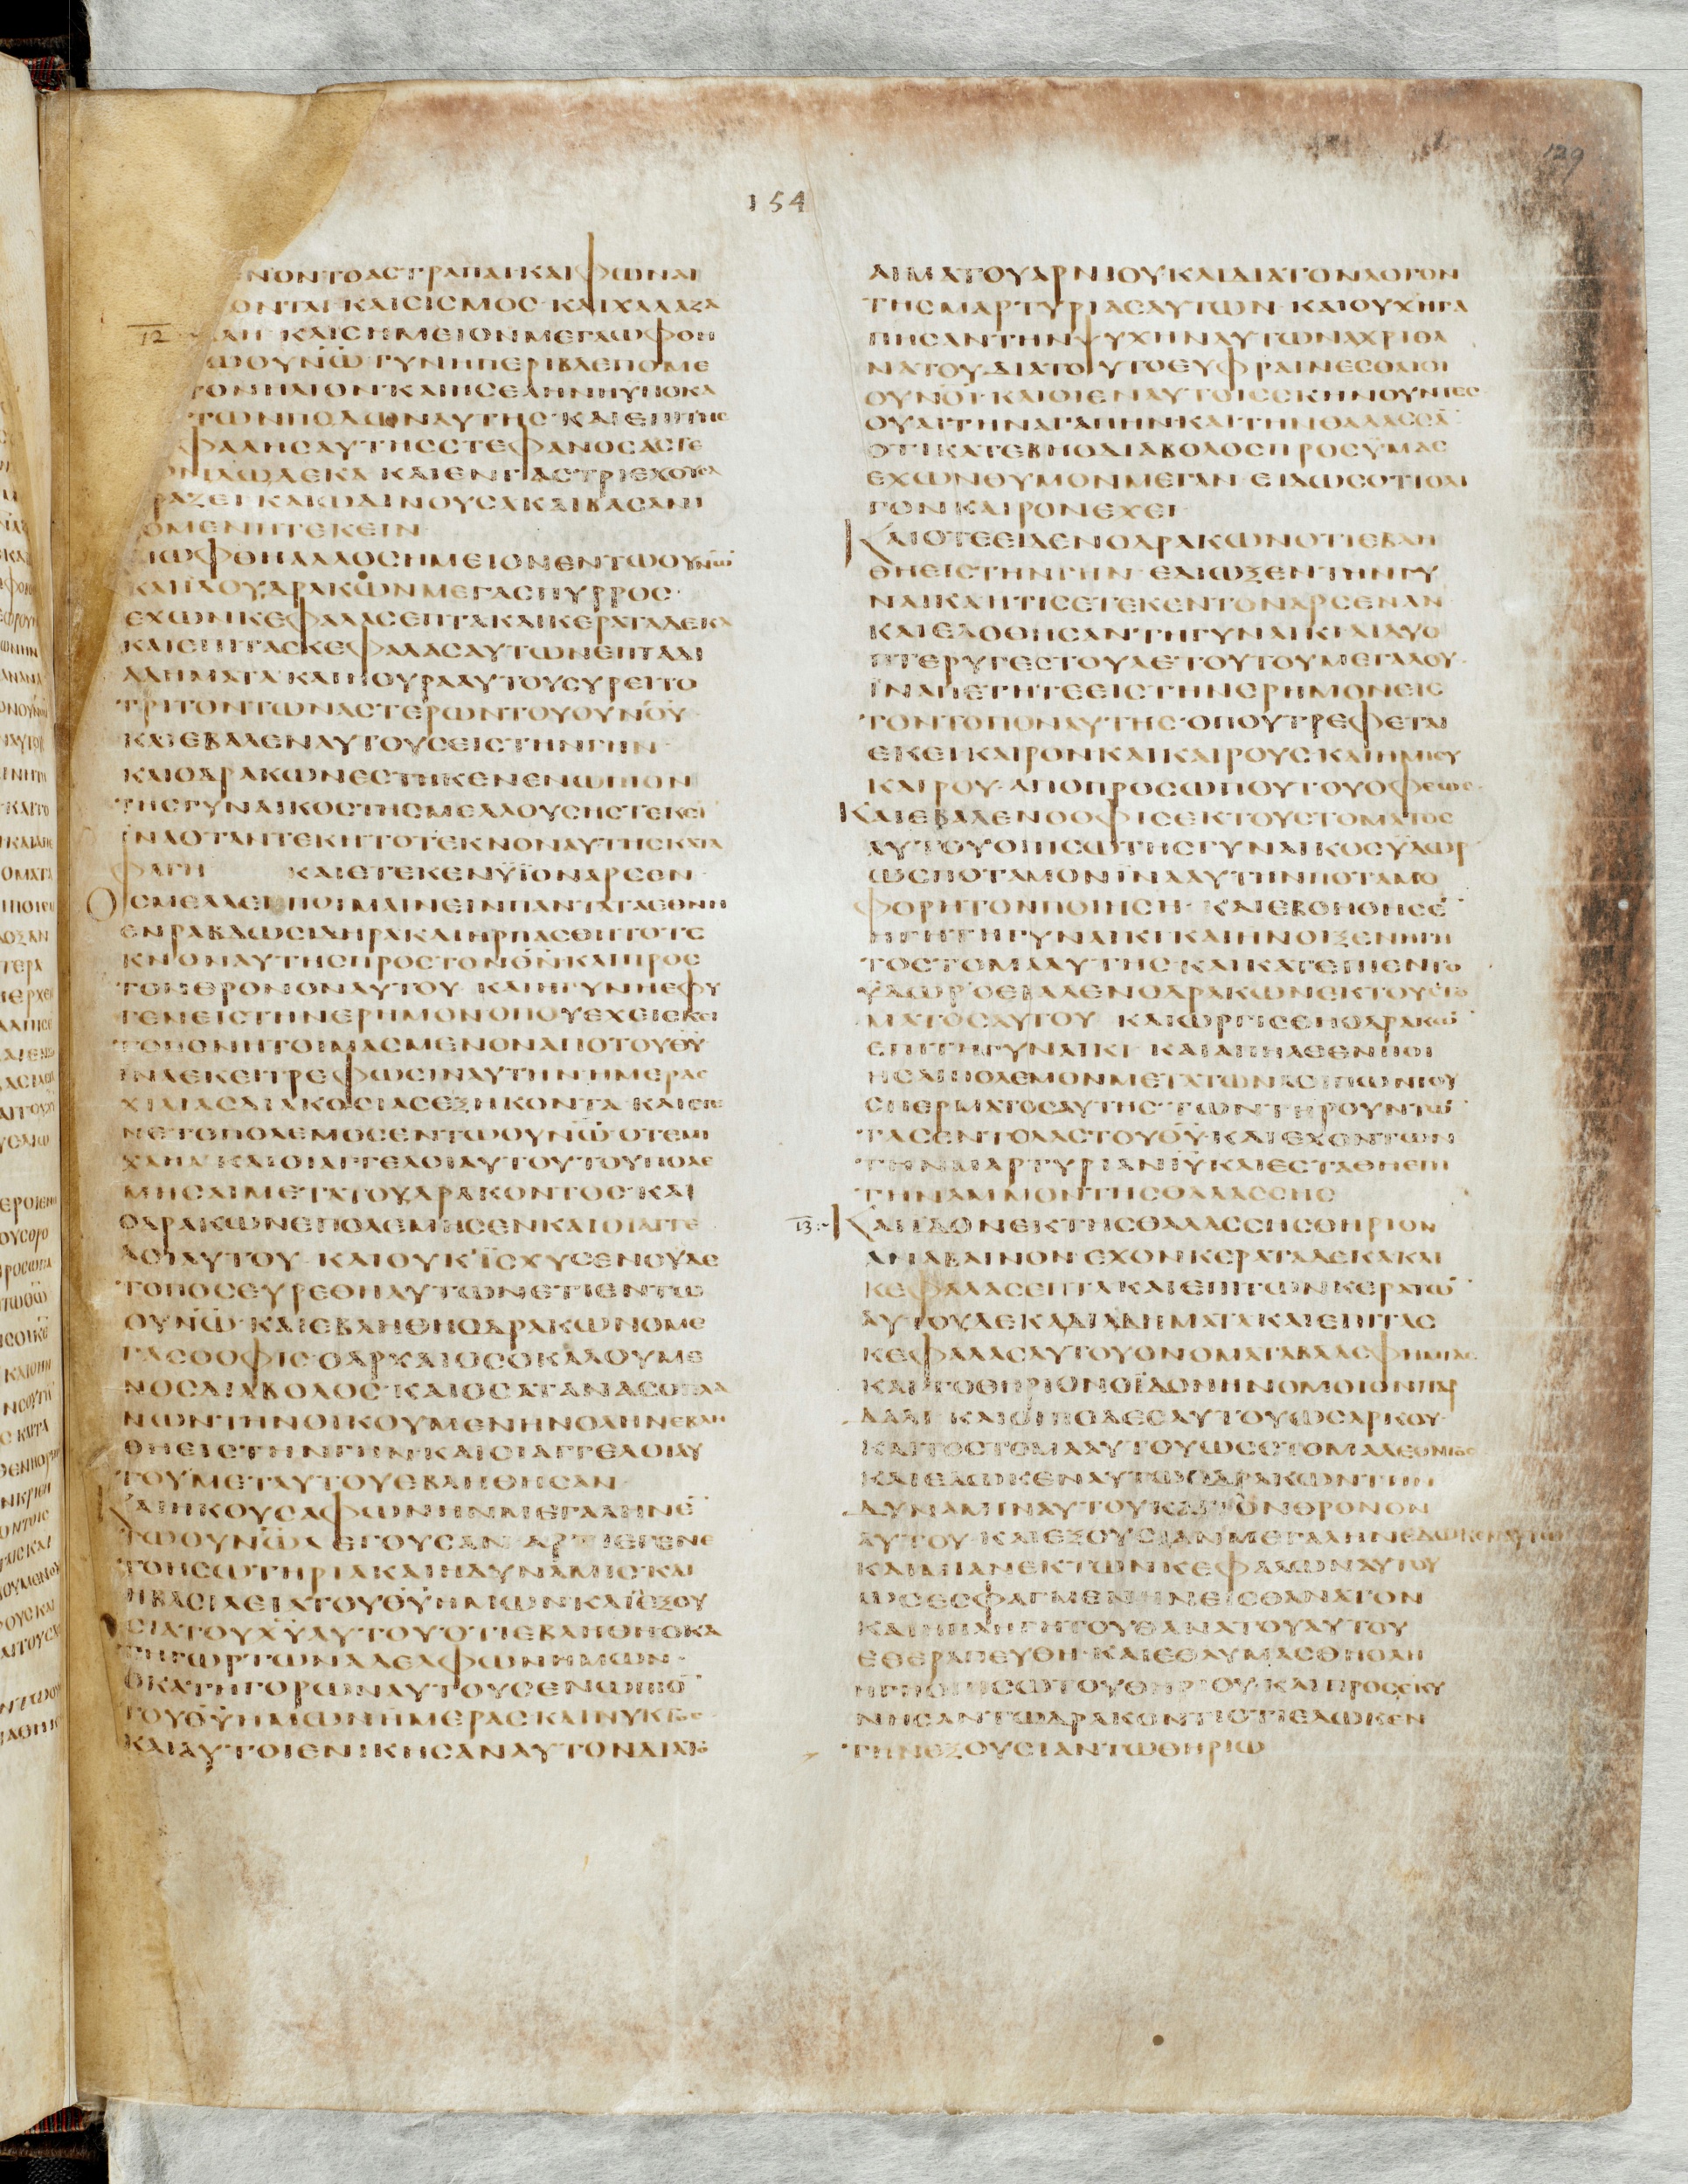 129
154
ΝΟΝΤΟΑΣΤΡΑΠΑΙ·ΚΑΙΦΩΝΑΙ
ΟΝΤΑΙ·ΚΑΙΣΙΣΜΟΣ·ΚΑΙΧΑΛΑΖΑ
12 ΛΗ· ΚΑΙΣΗΜΕΙΟΝΜΕΓΑΩΦΘΗ
ΩΟΥΝΩ ΓΥΝΗΠΕΡΙΒΛΕΠΟΜΕ
ΤΟΝΗΛΙΟΝ·ΚΑΙΗΣΕΛΗΝΗΥΠΟΚΑ
ΤΩΝΠΟΔΩΝΑΥΤΗΣ·ΚΑΙΕΠΙΤΗΣ
ΦΑΛΗΣΑΥΤΗΣΣΤΕΦΑΝΟΣΑΣΤΕ
ΩΝΔΩΔΕΚΑ ΚΑΙΕΝΓΑΣΤΡΙΕΧΟΥΣΑ
ΡΑΖΕΙ·ΚΑΙΩΔΙΝΟΥΣΑΚΑΙΒΑΣΑΝΙ
ΟΜΕΝΗΤΕΚΕΙΝ
ΙΩΦΘΗΑΛΛΟΣΗΜΕΙΟΝΕΝΤΩΟΥΝΩ
ΚΑΙΙΔΟΥΔΡΑΚΩΝΜΕΓΑΣΠΥΡΡΟΣ·
ΕΧΩΝΚΕΦΑΛΑΣΕΠΤΑΚΑΙΚΕΡΑΤΑΔΕΚΑ
ΚΑΙΕΠΙΤΑΣΚΕΦΑΛΑΣΑΥΤΩΝΕΠΤΑΔΙ
ΑΔΗΜΑΤΑ·ΚΑΙΗΟΥΡΑΑΥΤΟΥΣΥΡΕΙΤΟ
ΤΡΙΤΟΝΤΩΝΑΣΤΕΡΩΝΤΟΥΟΥΝΟΥ·
ΚΑΙΕΒΑΛΕΝΑΥΤΟΥΣΕΙΣΤΗΝΓΗΝ·
ΚΑΙΟΔΡΑΚΩΝΕΣΤΗΚΕΝΕΝΩΠΙΟΝ
ΤΗΣΓΥΝΑΙΚΟΣΤΗΣΜΕΛΛΟΥΣΗΣΤΕΚΕΙ
ΙΝΑΟΤΑΝΤΕΚΗΤΟΤΕΚΝΟΝΑΥΤΗΣΚΑΤΑ
ΦΑΓΗ ΚΑΙΕΤΕΚΕΝΥΪΟΝΑΡΣΕΝ·
ΟΣΜΕΛΛΕΙΠΟΙΜΑΙΝΕΙΝΠΑΝΤΑΤΑΕΘΝΗ
ΕΝΡΑΒΔΩΣΙΔΗΡΑΚΑΙΗΡΠΑΣΘΗΤΟΤΕ
ΚΝΟΝΑΥΤΗΣΠΡΟΣΤΟΝΘΝΚΑΙΠΡΟΣ
ΤΟΝΘΡΟΝΟΝΑΥΤΟΥ ΚΑΙΗΓΥΝΗΕΦΥ
ΓΕΝΕΙΣΤΗΝΕΡΗΜΟΝΟΠΟΥΕΧΕΙΕΚΕΙ
ΤΟΠΟΝΗΤΟΙΜΑΣΜΕΝΟΝΑΠΟΤΟΥΘΥ
ΙΝΑΕΚΕΙΤΡΕΦΩΣΙΝΑΥΤΗΝΗΜΕΡΑΣ
ΧΙΛΙΑΣΔΙΑΚΟΣΙΑΣΕΞΗΚΟΝΤΑ·ΚΑΙΕΓΕ
ΝΕΤΟΠΟΛΕΜΟΣΕΝΤΩΟΥΝΩ·ΟΤΕΜΙ
ΧΑΗΛ·ΚΑΙΟΙΑΓΓΕΛΟΙΑΥΤΟΥΤΟΥΠΟΛΕ
ΜΗΣΑΙΜΕΤΑΤΟΥΔΡΑΚΟΝΤΟΣ·ΚΑΙ
ΟΔΡΑΚΩΝΕΠΟΛΕΜΗΣΕΝΚΑΙΟΙΑΓΓΕ
ΛΟΙΑΥΤΟΥ·ΚΑΙΟΥΚΪΣΧΥΣΕΝΟΥΔΕ
ΤΟΠΟΣΕΥΡΕΘΗΑΥΤΩΝΕΤΙΕΝΤΩ
ΟΥΝΩ·ΚΑΙΕΒΛΗΘΗΟΔΡΑΚΩΝΟΜΕ
ΓΑΣΟΟΦΙΣ·ΟΑΡΧΑΙΟΣΟΚΑΛΟΥΜΕ
ΝΟΣΔΙΑΒΟΛΟΣ·ΚΑΙΟΣΑΤΑΝΑΣΟΠΛΑ
ΝΩΝΤΗΝΟΙΚΟΥΜΕΝΗΝΟΛΗΝΕΒΛΗ
ΘΗΕΙΣΤΗΝΓΗΝ·ΚΑΙΟΙΑΓΓΕΛΟΙΑΥ
ΤΟΥΜΕΤΑΥΤΟΥΕΒΛΗΘΗΣΑΝ·
ΚΑΙΗΚΟΥΣΑΦΩΝΗΝΜΕΓΑΛΗΝΕ
ΤΩΟΥΝΩΛΕΓΟΥΣΑΝ·ΑΡΤΙΕΓΕΝΕ
ΤΟΗΣΩΤΗΡΙΑΚΑΙΗΔΥΝΑΜΙΣΚΑΙ
ΗΒΑΣΙΛΕΙΑΤΟΥΘΥΗΜΩΝΚΑΙΗΕΞΟΥ
ΣΙΑΤΟΥΧΥΑΥΤΟΥΟΤΙΕΒΛΗΘΗΟΚΑ
ΤΗΓΩΡΤΩΝΑΔΕΛΦΩΝΗΜΩΝ·
ΟΚΑΤΗΓΟΡΩΝΑΥΤΟΥΣΕΝΩΠΙΟ
ΤΟΥΘΥΗΜΩΝΗΜΕΡΑΣΚΑΙΝΥΚΤΟΣ
ΚΑΙΑΥΤΟΙΕΝΙΚΗΣΑΝΑΥΤΟΝΔΙΑΤΟ
ΑΙΜΑΤΟΥΑΡΝΙΟΥΚΑΙΔΙΑΤΟΝΛΟΓΟΝ
ΤΗΣΜΑΡΤΥΡΙΑΣΑΥΤΩΝ·ΚΑΙΟΥΧΗΓΑ
ΠΗΣΑΝΤΗΝΨΥΧΗΝΑΥΤΩΝΑΧΡΙΘΑ
ΝΑΤΟΥ·ΔΙΑΤΟΥΤΟΕΥΦΡΑΙΝΕΣΘΑΙΟΙ
ΟΥΝΟΙ·ΚΑΙΟΙΕΝΑΥΤΟΙΣΣΚΗΝΟΥΝΤΕΣ
ΟΥΑΙΤΗΝΑΓΑΠΗΝΚΑΙΤΗΝΘΑΛΑΣΣΑ
ΟΤΙΚΑΤΕΒΗΟΔΙΑΒΟΛΟΣΠΡΟΣΥΜΑΣ
ΕΧΩΝΘΥΜΟΝΜΕΓΑΝ·ΕΙΔΩΣΟΤΙΟΛΙ
ΓΟΝΚΑΙΡΟΝΕΧΕΙ·
ΚΑΙΟΤΕΕΙΔΕΝΟΔΡΑΚΩΝΟΤΙΕΒΛΗ
ΘΗΕΙΣΤΗΝΓΗΝ·ΕΔΙΩΞΕΝΤΗΝΓΥ
ΝΑΙΚΑΗΤΙΣΕΤΕΚΕΝΤΟΝΑΡΣΕΝΑΝ·
ΚΑΙΕΔΟΘΗΣΑΝΤΗΓΥΝΑΙΚΙΑΙΔΥΟ
ΠΤΕΡΥΓΕΣΤΟΥΑΕΤΟΥΤΟΥΜΕΓΑΛΟΥ·
ΪΝΑΠΕΤΗΤΕΕΙΣΤΗΝΕΡΗΜΟΝΕΙΣ
ΤΟΝΤΟΠΟΝΑΥΤΗΣ·ΟΠΟΥΤΡΕΦΕΤΑΙ
ΕΚΕΙ·ΚΑΙΡΟΝΚΑΙΚΑΙΡΟΥΣ·ΚΑΙΗΜΙΣΥ
ΚΑΙΡΟΥ·ΑΠΟΠΡΟΣΩΠΟΥΤΟΥΟΦΕΩΣ·
ΚΑΙΕΒΑΛΕΝΟΟΦΙΣΕΚΤΟΥΣΤΟΜΑΤΟΣ
ΑΥΤΟΥΟΠΙΣΩΤΗΣΓΥΝΑΙΚΟΣΥΔΩΡ
ΩΣΠΟΤΑΜΟΝΪΝΑΑΥΤΗΝΠΟΤΑΜΟ
ΦΟΡΗΤΟΝΠΟΙΗΣΗ·ΚΑΙΕΒΟΗΘΗΣΕ
ΗΓΗΤΗΓΥΝΑΙΚΙ·ΚΑΙΗΝΟΙΞΕΝΗΓΗ
ΤΟΣΤΟΜΑΑΥΤΗΣ·ΚΑΙΚΑΤΕΠΙΕΝΤΟ
ΫΔΩΡΟΕΒΑΛΕΝΟΔΡΑΚΩΝΕΚΤΟΥΣΤΟ
ΜΑΤΟΣΑΥΤΟΥ ΚΑΙΩΡΓΙΣΘΗΟΔΡΑΚΩ
ΕΠΙΤΗΓΥΝΑΙΚΙ·ΚΑΙΑΠΗΛΘΕΝΠΟΙ
ΗΣΑΙΠΟΛΕΜΟΝΜΕΤΑΤΩΝΛΟΙΠΩΝΤΟΥ
ΣΠΕΡΜΑΤΟΣΑΥΤΗΣ·ΤΩΝΤΗΡΟΥΝΤΩ
ΤΑΣΕΝΤΟΛΑΣΤΟΥΘΥ·ΚΑΙΕΧΟΝΤΩΝ
ΤΗΝΜΑΡΤΥΡΙΑΝΙΥΚΑΙΕΣΤΑΘΗΕΠΙ
ΤΗΝΑΜΜΟΝΤΗΣΘΑΛΑΣΣΗΣ
13 ΚΑΙΙΔΟΝΕΚΤΗΣΘΑΛΑΣΣΗΣΘΗΡΙΟΝ
ΑΝΑΒΑΙΝΟΝ·ΕΧΟΝΚΕΡΑΤΑΔΕΚΑΚΑΙ
ΚΕΦΑΛΑΣΕΠΤΑΚΑΙΕΠΙΤΩΝΚΕΡΑΤΩ
ΑΥΤΟΥΔΕΚΑΔΙΑΔΗΜΑΤΑΚΑΙΕΠΙΤΑΣ
ΚΕΦΑΛΑΣΑΥΤΟΥΟΝΟΜΑΤΑΒΛΑΣΦΗΜΙΑΣ
ΚΑΙΤΟΘΗΡΙΟΝΟΪΔΟΝΗΝΟΜΟΙΟΝΠΑΡ
ΔΑΛΙ·ΚΑΙΟΙΠΟΔΕΣΑΥΤΟΥΩΣΑΡΚΟΥ·
ΚΑΙΤΟΣΤΟΜΑΑΥΤΟΥΩΣΣΤΟΜΑΛΕΟΝΤΟΣ
ΚΑΙΕΔΩΚΕΝΑΥΤΩΟΔΡΑΚΩΝΤΗΝ
ΔΥΝΑΜΙΝΑΥΤΟΥΚΑΙΤΟΝΘΡΟΝΟΝ
ΑΥΤΟΥ·ΚΑΙΕΞΟΥΣΙΑΝΜΕΓΑΛΗΝΕΔΩΚΕΝΑΥΤΩ
ΚΑΙΜΙΑΝΕΚΤΩΝΚΕΦΑΛΩΝΑΥΤΟΥ
ΩΣΕΣΦΑΓΜΕΝΗΝΕΙΣΘΑΝΑΤΟΝ
ΚΑΙΗΠΛΗΓΗΤΟΥΘΑΝΑΤΟΥΑΥΤΟΥ
ΕΘΕΡΑΠΕΥΘΗ·ΚΑΙΕΘΑΥΜΑΣΘΗΟΛΗ
ΗΓΗΟΠΙΣΩΤΟΥΘΗΡΙΟΥ·ΚΑΙΠΡΟΣΕΚΥ
ΝΗΣΑΝΤΩΔΡΑΚΟΝΤΙΟΤΙΕΔΩΚΕΝ
ΤΗΝΕΞΟΥΣΙΑΝΤΩΘΗΡΙΩ